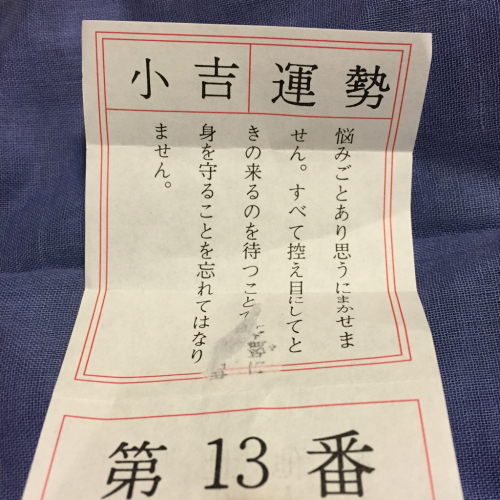 小吉 運勢
悩みごとあり思うにまかせま
せん。すべて控え目にしてと
きの来るのを待つこと
身を守ることを忘れてはなり
ません。
第13番